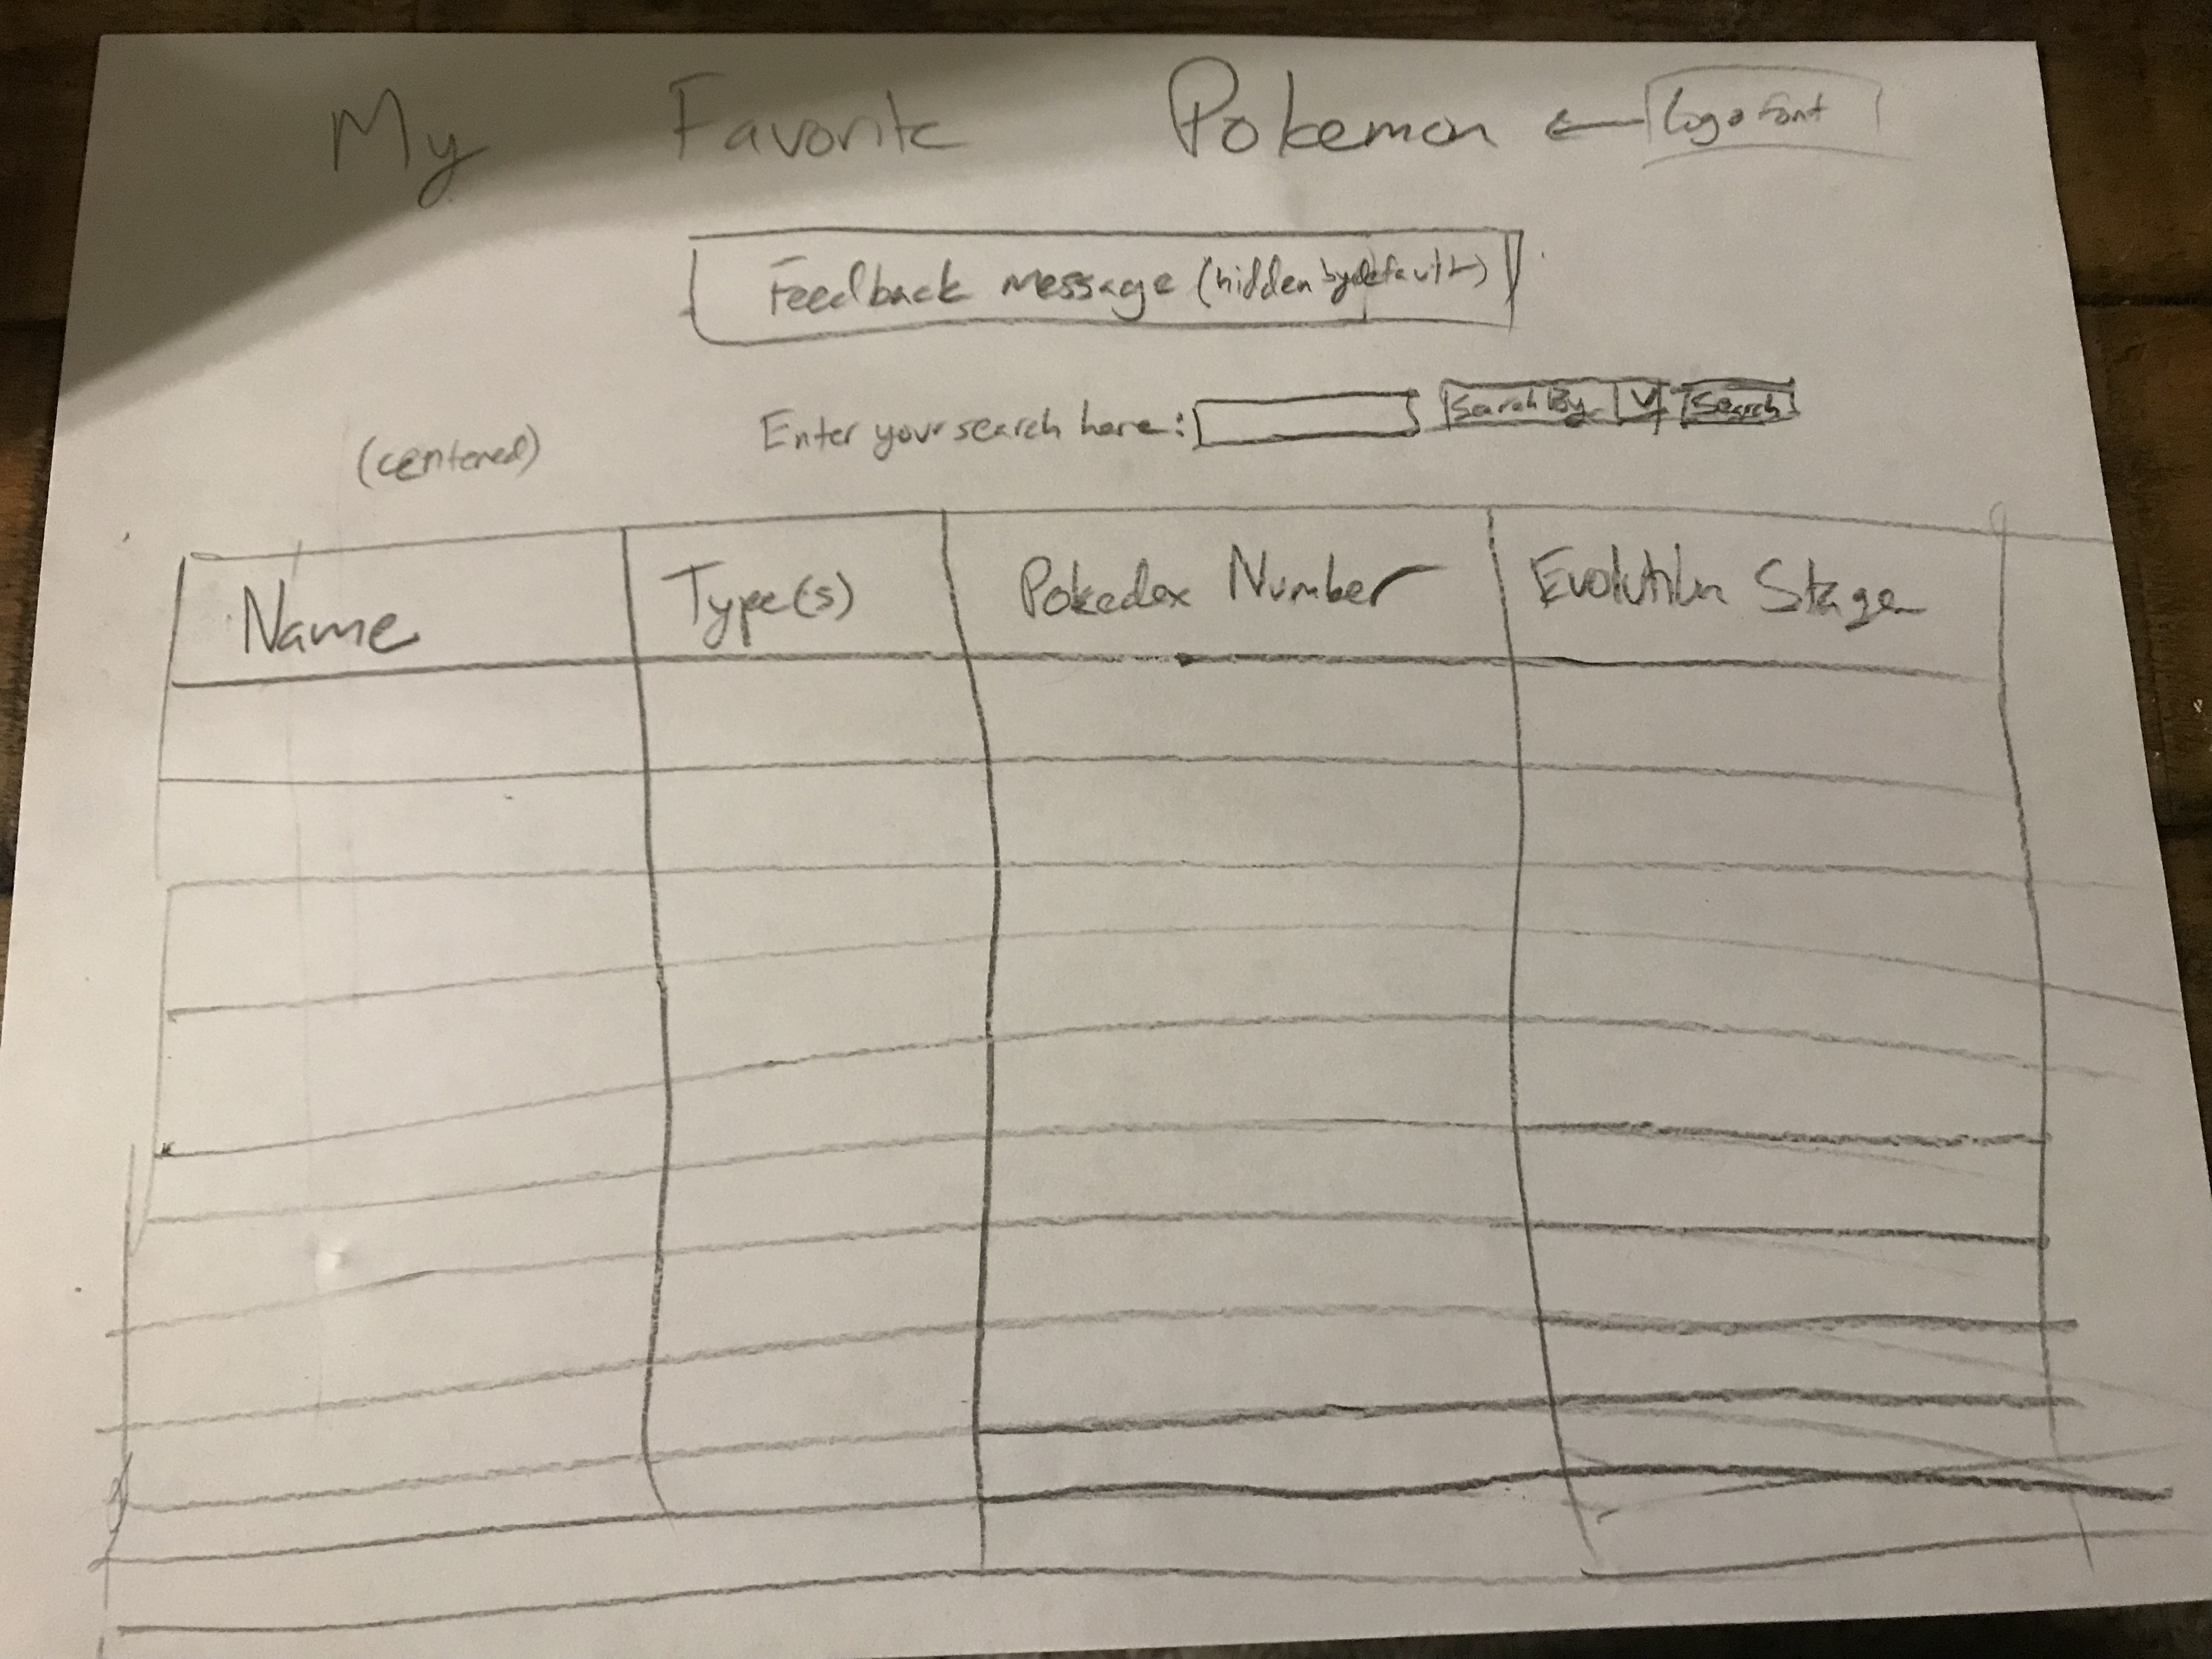 My Favorite Pokemon ← Logo font
Feedback message (hidden by default)
Enter your search here: Search By V Search
(centered)
Name Type(s) Pokedex Number Evolution Stage